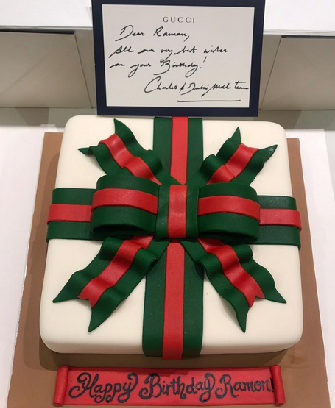 GUCCI
Dear Ramon,
All our very best wishes
on your Birthday!
Charles &
Happy Birthday Ramon!